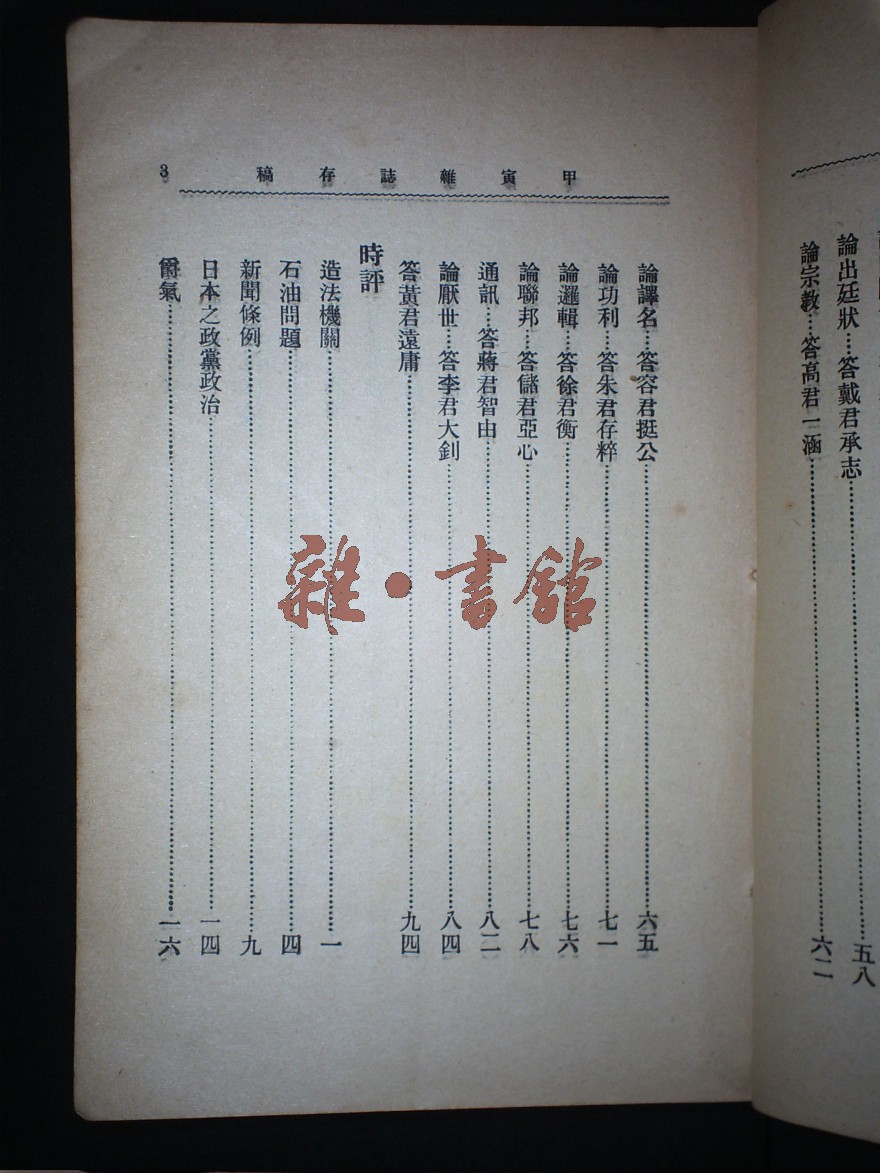 論出廷狀…答戴君承志……五八
論宗教…答高君一涵……六二
甲寅雜誌存稿
3
論譯名…答容君挺公……六五
論功利…答朱君存粹……七一
論邏輯…答徐君衡……七六
論聯邦…答儲君亞心……七八
通訊…答蔣君智由……八二
論厭世…答李君大釗……八四
答黃君遠庸……九四
時評
造法機關……一
石油問題……四
新聞條例……九
日本之政黨政治……一四
爵氣……一六
雜·書館